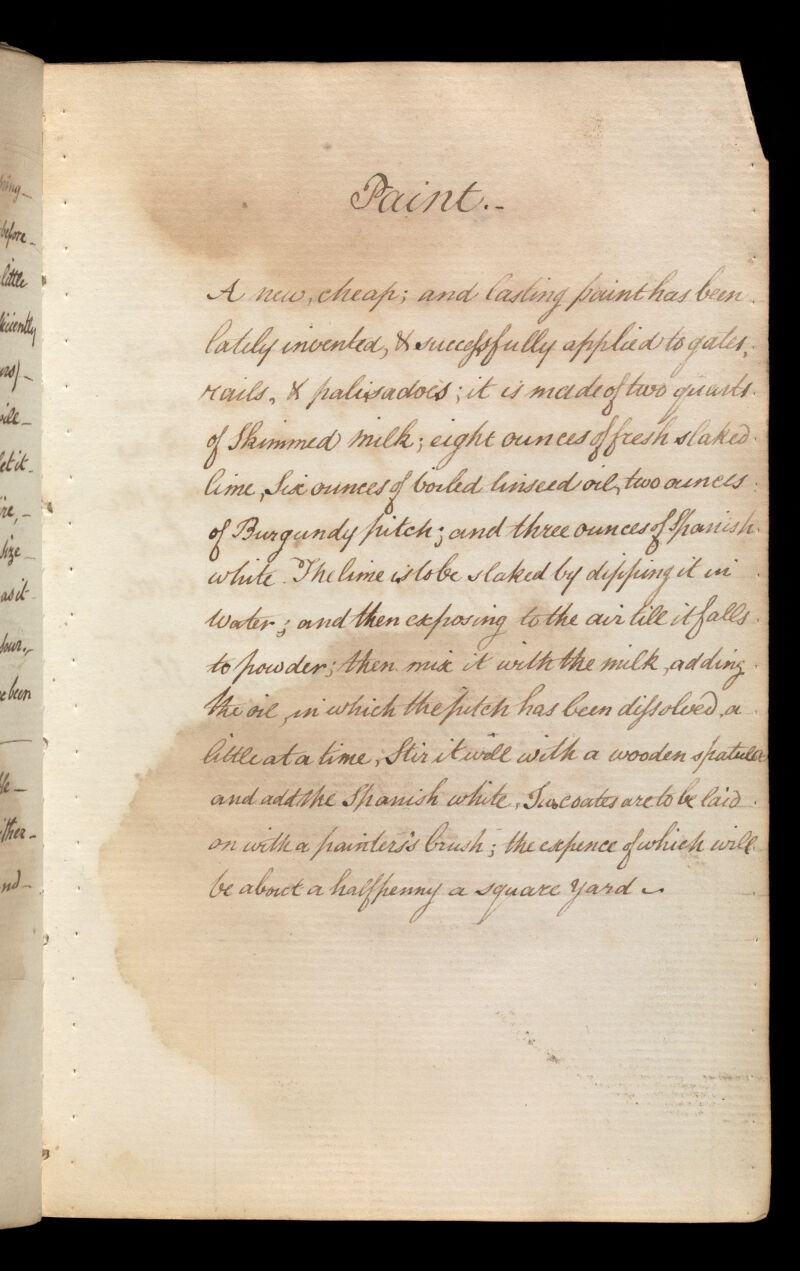 Paint.-
A new, cheap; and lasting paint has been
lately invented, & successfully applied to gates,
rails, & palisadoes; it is made of two quarts
of Skimmed milk; eight ounces of fresh slaked
lime, Six ounces of boiled linseed oil, two ounces
of Burgundy pitch; and three ounces of Spanish
white. The lime is to be slaked by dipping it in
Water; and then exposing to the air till it falls
to powder; then mix it with the milk, adding
the oil, in which the pitch has been dissolved, a
little at a time, Stir it well with a wooden spatula
and add the Spanish white, Two coates are to be laid
on with a painters's brush; the expence of which will
be about a halfpenny a square yard
before
little
ficiently
let it
Size
as it
been